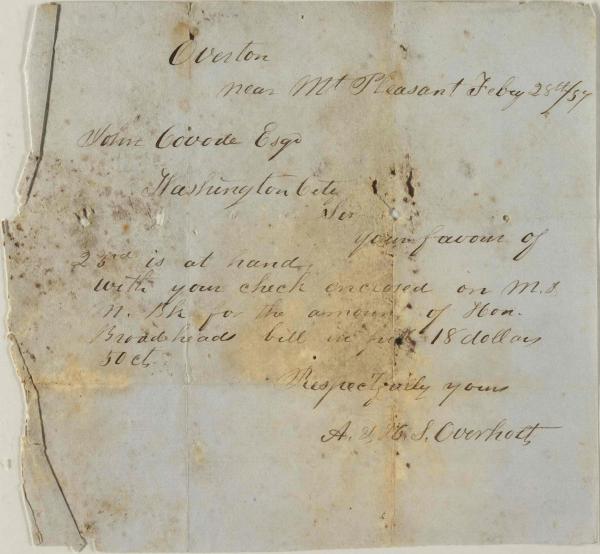 Overton
near Mt Pleasant Feby 28th/57
John Covode Esqr
Washington City
Sir
your favour of
23rd is at hand,
with your check enclosed on M. &
M. Bk for the amount of Hon.
Broadheads bill in full 18 dollars
50 ct.
Respectfully yours
A. & H. S. Overholt